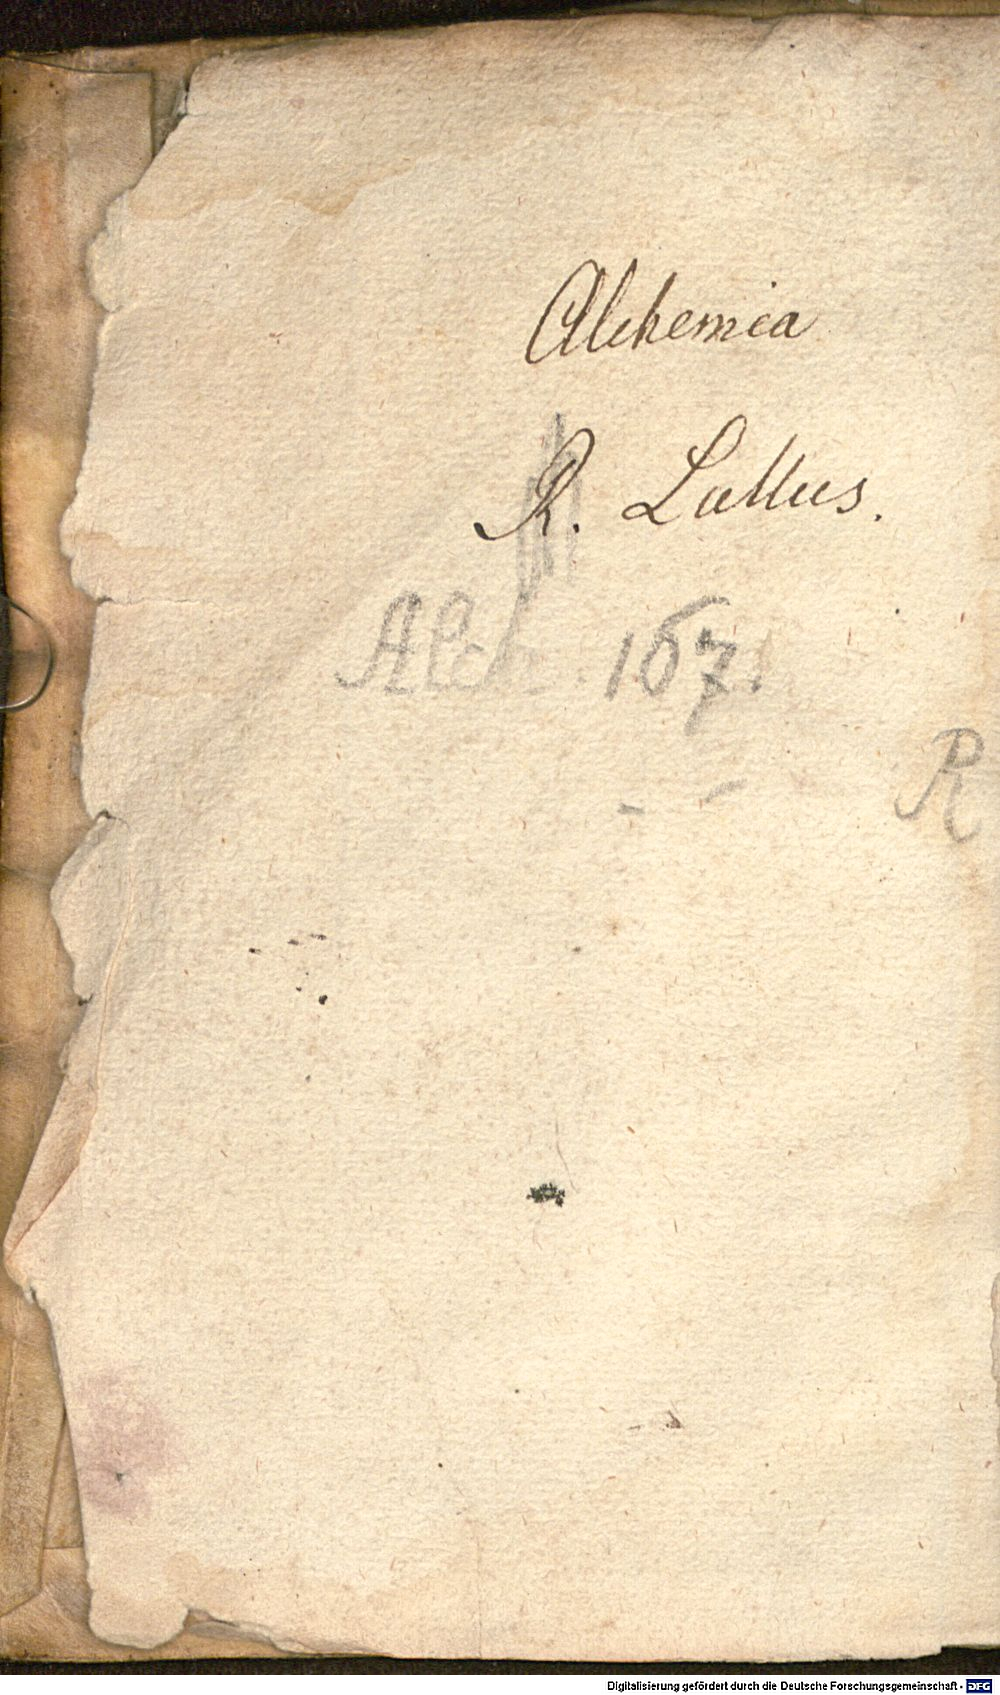 Alchemia
R. Lullus.
Alch. 167.
R
Digitalisierung gefördert durch die Deutsche Forschungsgemeinschaft - DFG